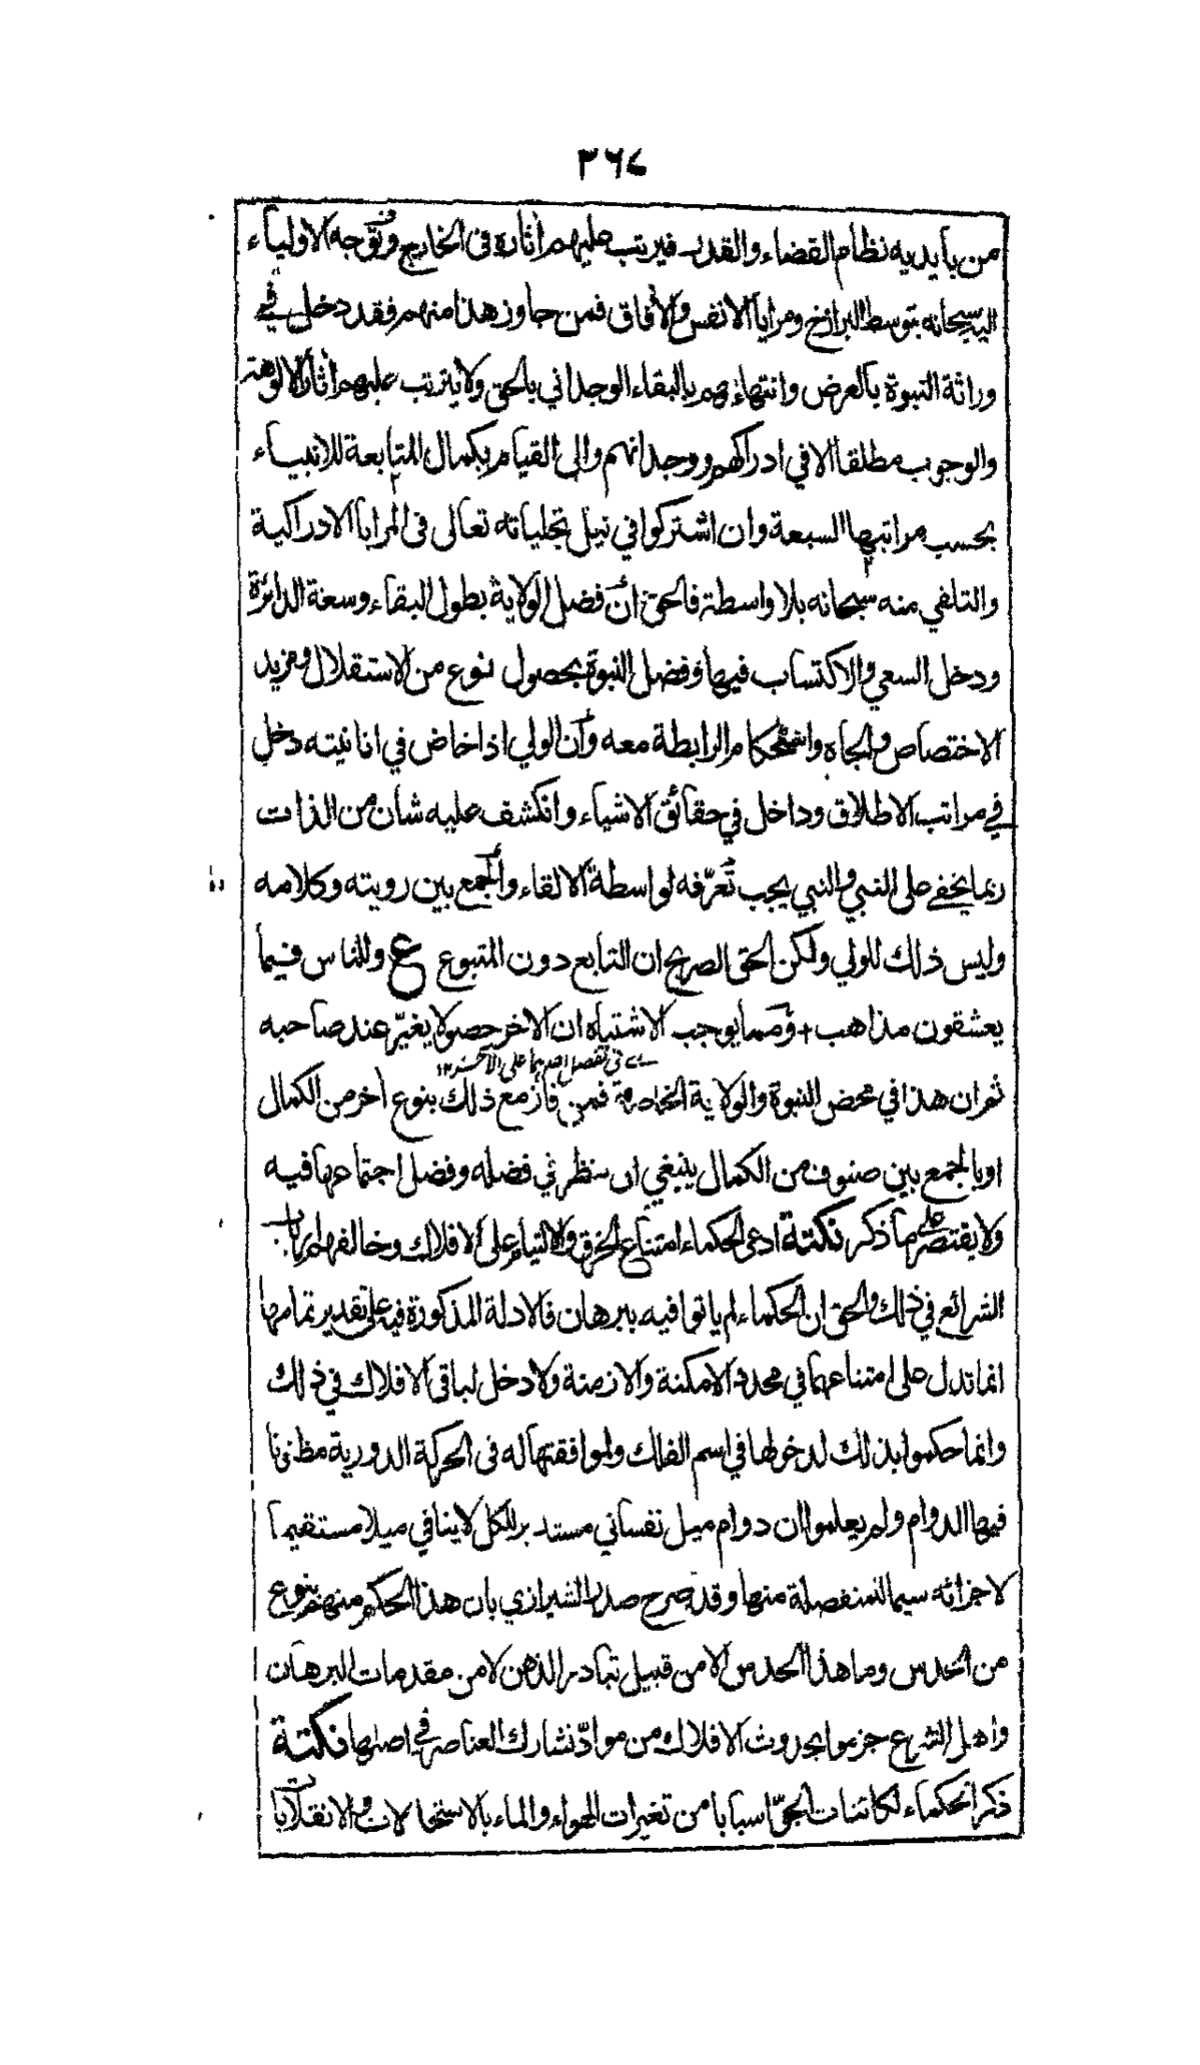 ٣٦٧
من بايديه نظام القضاء والقدر فيرتب عليهم آثاره فى الخارج وتوجه الاولياء
اليه سبحانه بتوسط البرازخ ومرايا الانفس والآفاق فمن جاوز هذا منهم فقد دخل في
وراثة النبوة بالعرض وانتهاؤهم بالبقاء الوجداني بالحق ولا يترتب عليهم آثار الالوهية
والوجوب مطلقا الا في ادراكهم ووجدانهم والى القيام بكمال المتابعة للانبياء
بحسب مراتبها السبعة وان اشتركوا في نيل تجلياته تعالى فى المرايا الادراكية
والتلقي منه سبحانه بلا واسطة فالحق ان فضل الولاية بطول البقاء وسعة الدائرة
ودخل السعي والاكتساب فيها وفضل النبوة بحصول نوع من الاستقلال ومزيد
الاختصاص والجاه واستحكام الرابطة معه وان الولي اذا خاض في انانيته دخل
في مراتب الاطلاق وداخل في حقائق الاشياء وانكشف عليه شان من الذات
ربما يخفى على النبي والنبي يجب تعرّفه لواسطة الالقاء والجمع بين رويته وكلامه
وليس ذلك للولي ولكن الحق الصريح ان التابع دون المتبوع ع وللناس فيما
يعشقون مذاهب + ومما يوجب الاشتباه ان الاخر حصولا يغيّر عند صاحبه
في تفضيل احدهما على الآخر ١٢
ثم ان هذا في محض النبوة والولاية الخاصة فمن فاز مع ذلك بنوع آخر من الكمال
او بالجمع بين صنوف من الكمال ينبغي ان ينظر في فضله وفضل اجتماعها فيه
ولا يقتصر على ما ذكر نكتة ادعى الحكماء امتناع الخرق والالتيام على الافلاك وخالفهم ارباب
الشرائع في ذلك والحق ان الحكماء لم ياتوا فيه ببرهان فالادلة المذكورة فيه على تقدير تمامها
انما تدل على امتناعهما في محدد الامكنة والازمنة ولا دخل لباقى الافلاك في ذلك
وانما حكموا بذلك لدخولها في اسم الفلك ولموافقتها له فى الحركة الدورية مظنونا
فيها الدوام ولم يعلموا ان دوام ميل نفساني مستدير للكل لا ينافي ميلا مستقيما
لاجزائه سيما المنفصلة منها وقد صرح صدر الشيرازي بان هذا الحكم منهم بنوع
من الحدس وما هذا الحدس الا من قبيل تبادر الذهن لا من مقدمات البرهان
واهل الشرع جزموا بحدوث الافلاك من موادّ تشارك العناصر في اصلها نكتة
ذكر الحكماء لكائنات الجوّ اسبابا من تغيرات الهواء والماء بالاستحالات والانقلابات